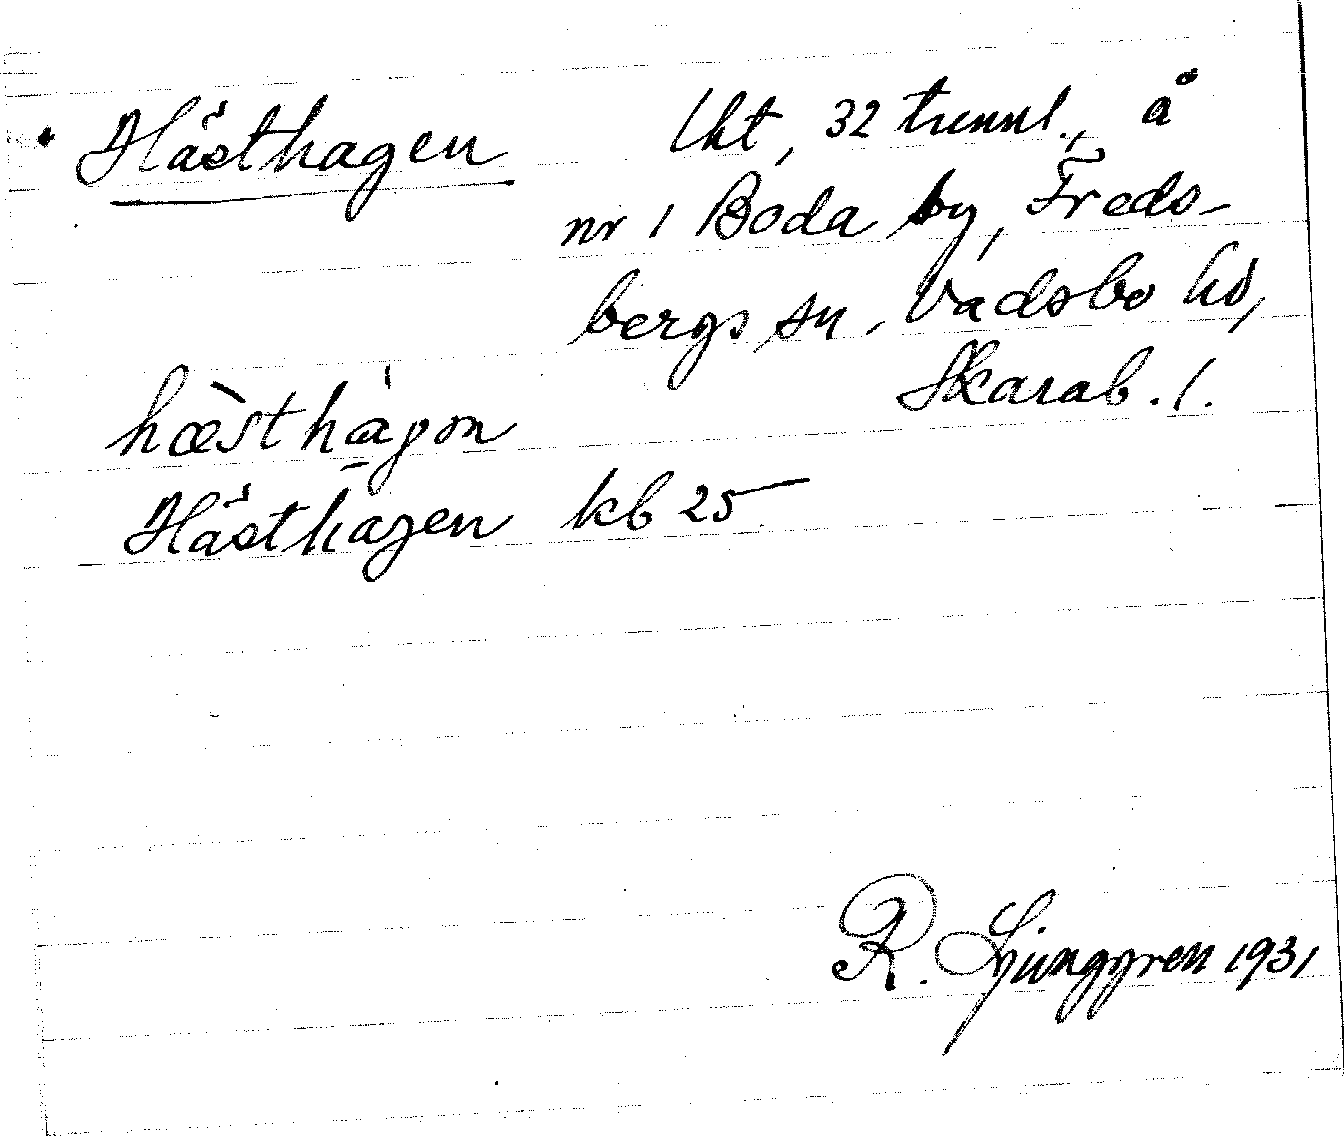 Hästhagen lht, 32 tunnl., å
nr 1 Boda by, Freds-
bergs sn, Vadsbo hd,
Skarab. l.
hæ̀sthá̱gən
Hästhagen kb 25
R. Ljunggren 1931